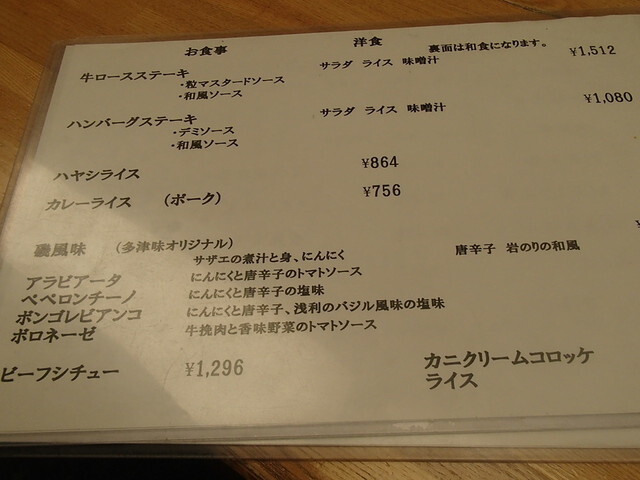 お食事 洋食 裏面は和食になります。
牛ロースステーキ サラダ ライス 味噌汁 ¥1,512
・粒マスタードソース
・和風ソース
ハンバーグステーキ サラダ ライス 味噌汁 ¥1,080
・デミソース
・和風ソース
ハヤシライス ¥864
カレーライス (ポーク) ¥756
磯風味 (多津味オリジナル)
サザエの煮汁と身、にんにく 唐辛子 岩のりの和風
アラビアータ にんにくと唐辛子のトマトソース
ペペロンチーノ にんにくと唐辛子の塩味
ボンゴレビアンコ にんにくと唐辛子、浅利のバジル風味の塩味
ボロネーゼ 牛挽肉と香味野菜のトマトソース
ビーフシチュー ¥1,296 カニクリームコロッケ
ライス